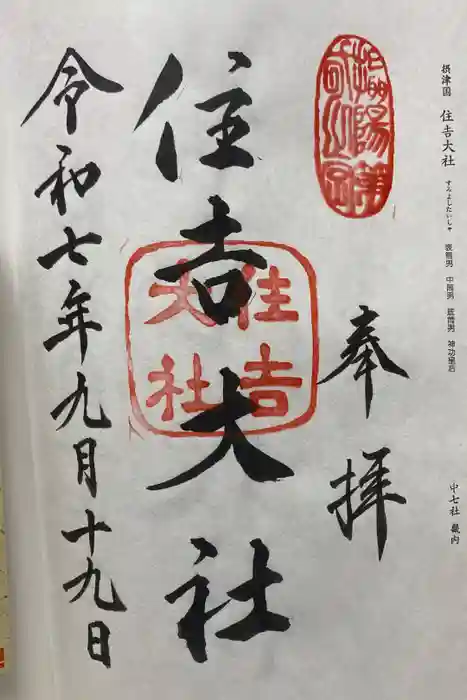 摂津国 住吉大社 すみよしたいしゃ 表筒男 中筒男 底筒男 神功皇后
中七社 畿内
奉拝
住吉大社
住吉大社
令和七年九月十九日